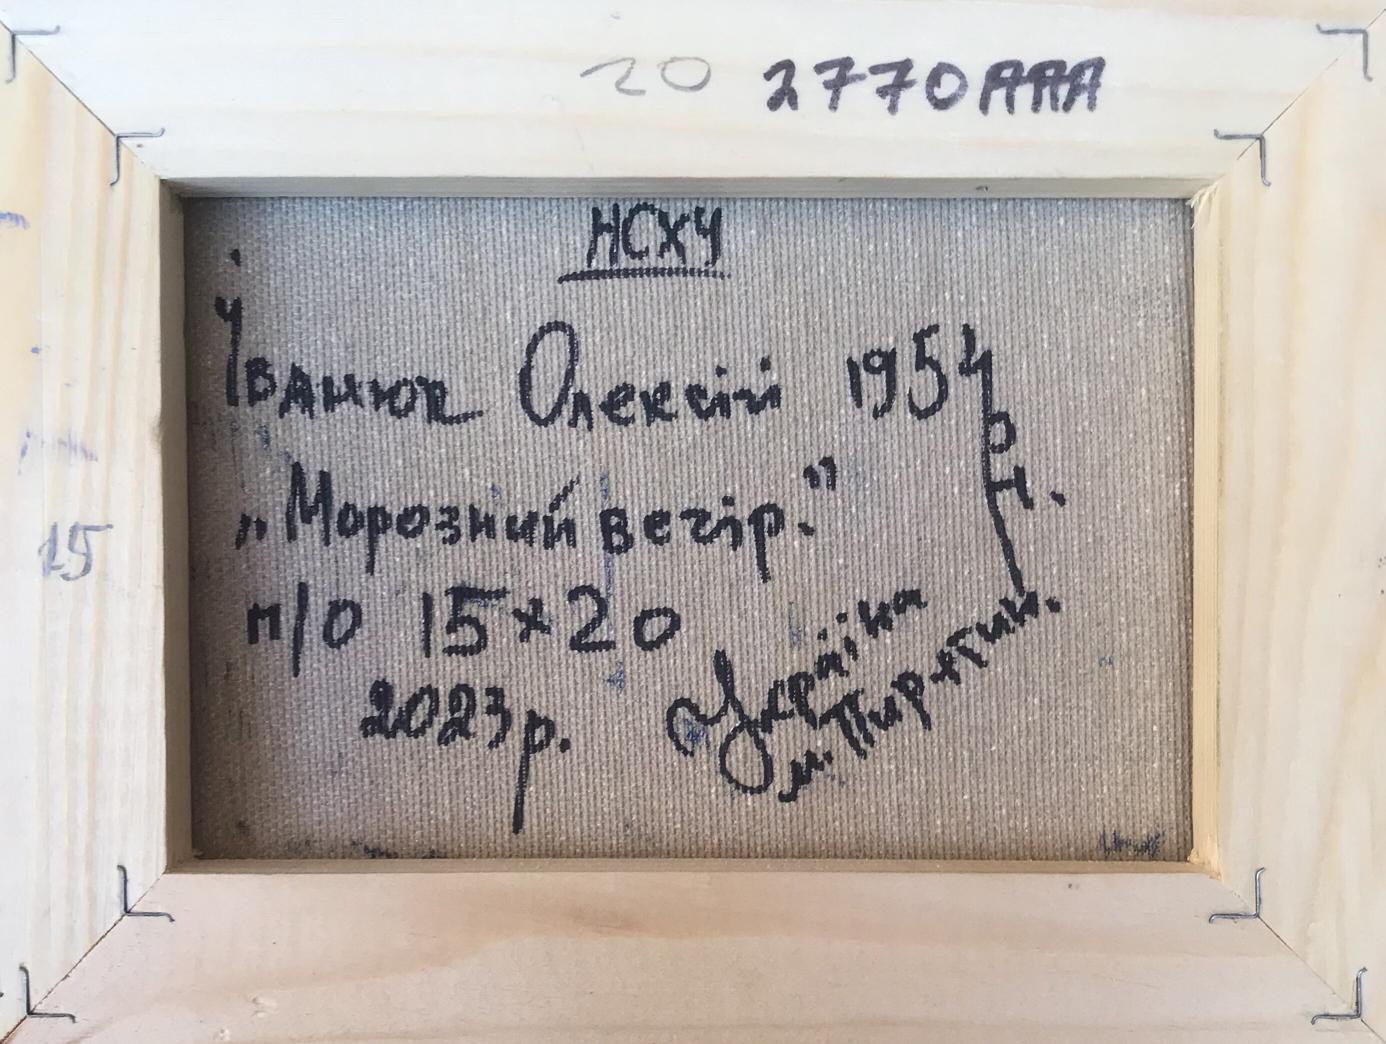 20 2770AAA
НСХУ
Іванюк Олексій 1954
р.н.
„Морозний вечір."
п/о 15х20
2023р.
Україна
м. Пирятин.
15